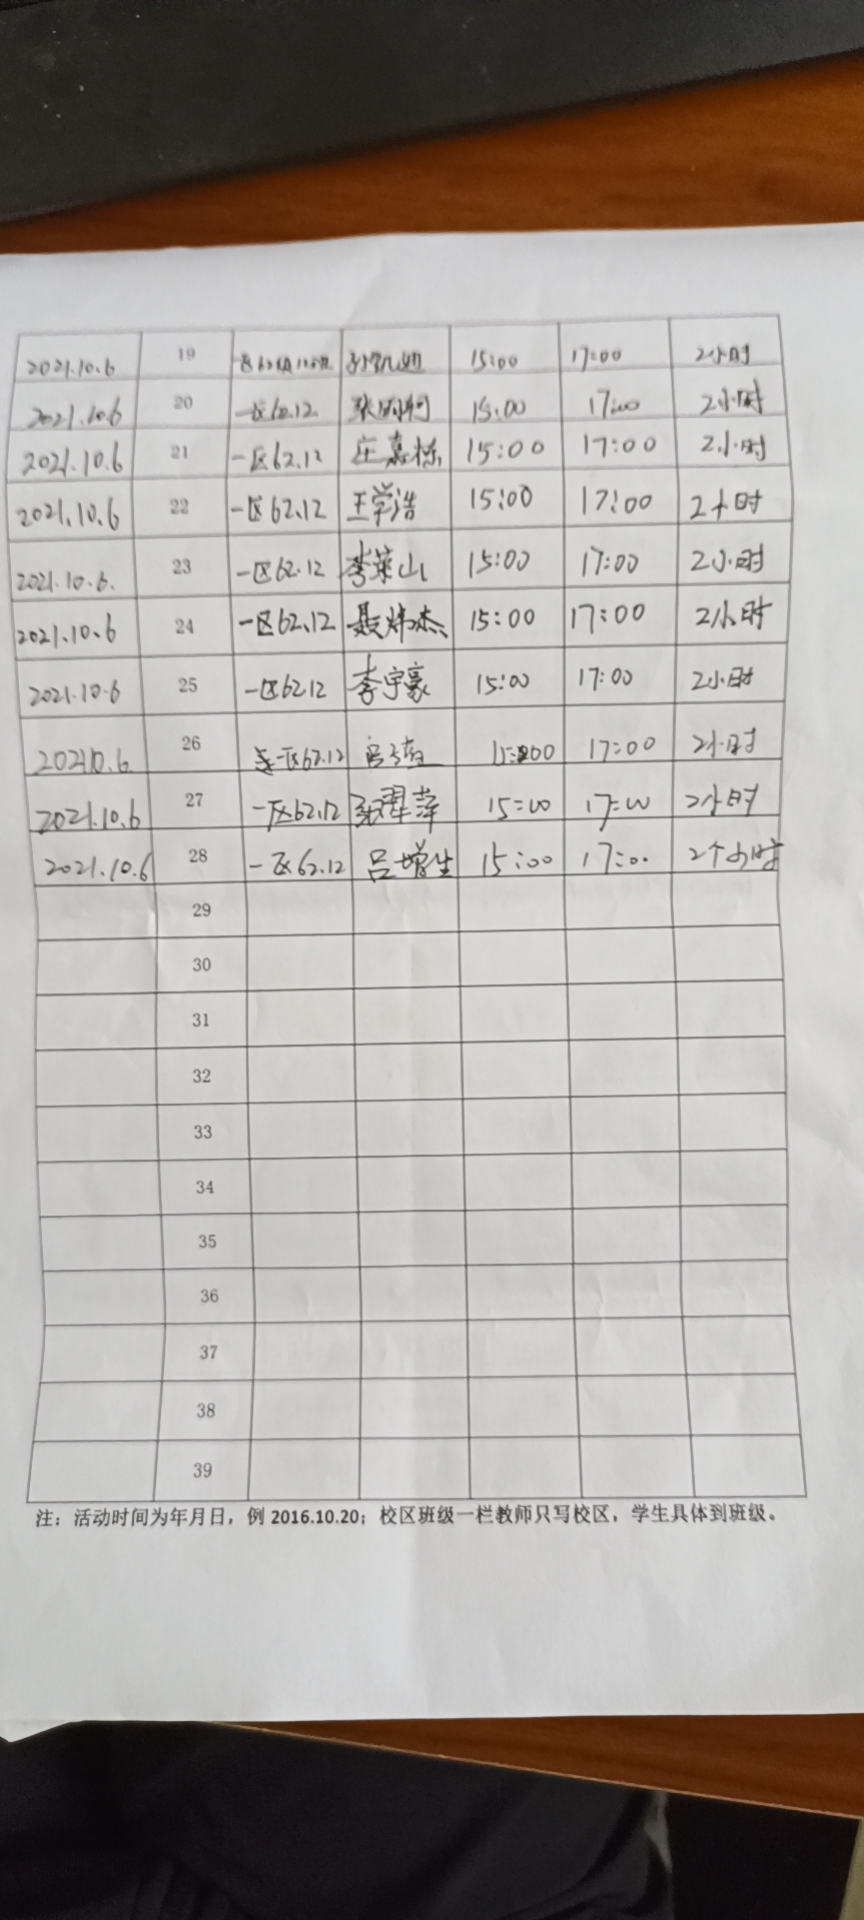 2021.10.6 19 15:00 17:00 2小时
2021.10.6 20 一区62.12 15:00 17:00 2小时
2021.10.6 21 一区62.12 庄嘉栋 15:00 17:00 2小时
2021.10.6 22 一区62.12 王学浩 15:00 17:00 2小时
2021.10.6. 23 一区62.12 李莱山 15:00 17:00 2小时
2021.10.6 24 一区62.12 聂炜杰 15:00 17:00 2小时
2021.10.6 25 一区62.12 李宇豪 15:00 17:00 2小时
202110.6 26 一区62.12 17:00 2小时
2021.10.6 27 一区62.12 15:00 17:00 2小时
2021.10.6 28 一区62.12 吕增生 15:00 17:00 2个小时
29
30
31
32
33
34
35
36
37
38
39
注：活动时间为年月日，例 2016.10.20；校区班级一栏教师只写校区，学生具体到班级。